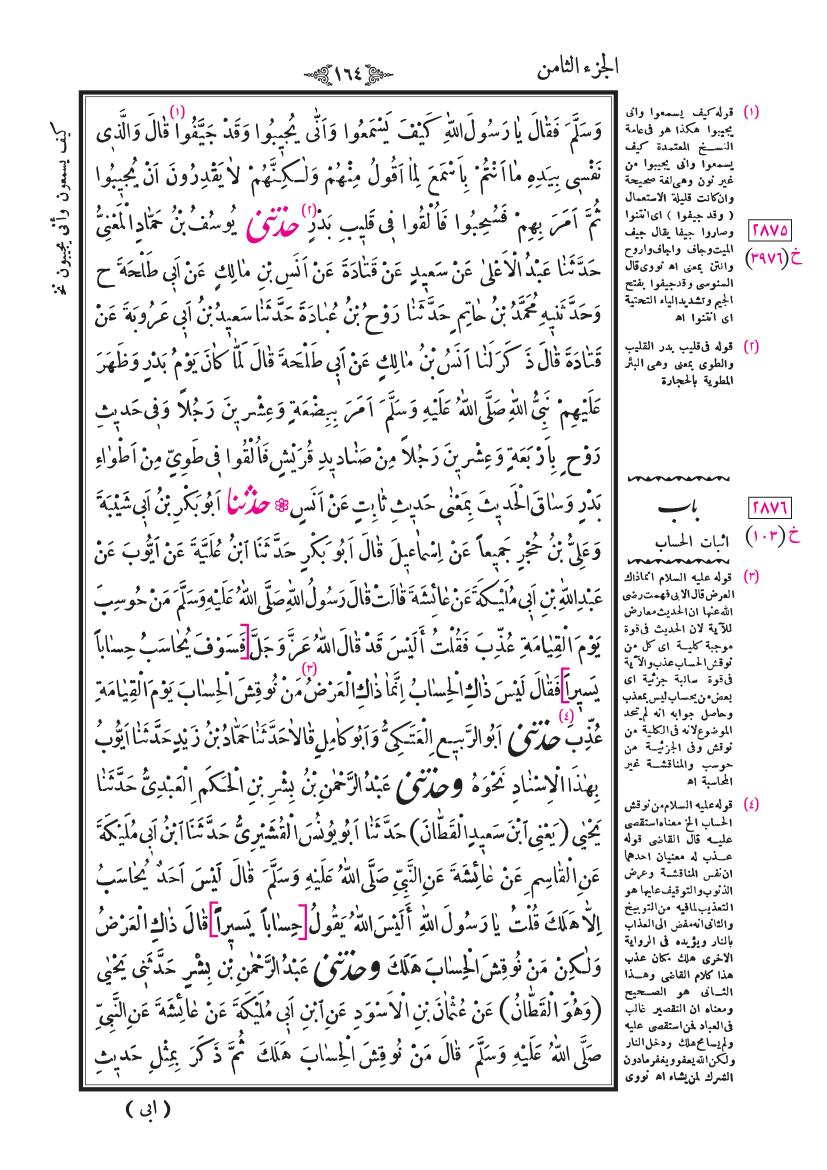 الجزء الثامن
١٦٤
وَسَلَّمَ فَقَالَ يَا رَسُولَ اللهِ كَيْفَ يَسْمَعُوا وَاَنّٰى يُجِيبُوا وَقَدْ جَيَّفُوا (١) قَالَ وَالَّذِى
نَفْسِى بِيَدِهِ مَا اَنْتُمْ بِاَسْمَعَ لِمَا اَقُولُ مِنْهُمْ وَلٰكِنَّهُمْ لَا يَقْدِرُونَ اَنْ يُجِيبُوا
ثُمَّ اَمَرَ بِهِمْ فَسُحِبُوا فَاُلْقُوا فِى قَلِيبِ بَدْرٍ (٢) حَدَّثَنِى يُوسُفُ بْنُ حَمَّادٍ الْمَعْنِىُّ
حَدَّثَنَا عَبْدُ الْاَعْلٰى عَنْ سَعِيدٍ عَنْ قَتَادَةَ عَنْ اَنَسِ بْنِ مَالِكٍ عَنْ اَبِى طَلْحَةَ ح
وَحَدَّثَنِيهِ مُحَمَّدُ بْنُ حَاتِمٍ حَدَّثَنَا رَوْحُ بْنُ عُبَادَةَ حَدَّثَنَا سَعِيدُ بْنُ اَبِى عَرُوبَةَ عَنْ
قَتَادَةَ قَالَ ذَكَرَ لَنَا اَنَسُ بْنُ مَالِكٍ عَنْ اَبِى طَلْحَةَ قَالَ لَمَّا كَانَ يَوْمُ بَدْرٍ وَظَهَرَ
عَلَيْهِمْ نَبِىُّ اللهِ صَلَّى اللهُ عَلَيْهِ وَسَلَّمَ اَمَرَ بِبِضْعَةٍ وَعِشْرِينَ رَجُلاً وَفِى حَدِيثِ
رَوْحٍ بِاَرْبَعَةٍ وَعِشْرِينَ رَجُلاً مِنْ صَنَادِيدِ قُرَيْشٍ فَاُلْقُوا فِى طَوِىٍّ مِنْ اَطْوَاءِ
بَدْرٍ وَسَاقَ الْحَدِيثَ بِمَعْنٰى حَدِيثِ ثَابِتٍ عَنْ اَنَسٍ ❁ حَدَّثَنَا اَبُو بَكْرِ بْنُ اَبِى شَيْبَةَ
وَعَلِىُّ بْنُ حُجْرٍ جَمِيعاً عَنْ اِسْمَاعِيلَ قَالَ اَبُو بَكْرٍ حَدَّثَنَا ابْنُ عُلَيَّةَ عَنْ اَيُّوبَ عَنْ
عَبْدِ اللهِ بْنِ اَبِى مُلَيْكَةَ عَنْ عَائِشَةَ قَالَتْ قَالَ رَسُولُ اللهِ صَلَّى اللهُ عَلَيْهِ وَسَلَّمَ مَنْ حُوسِبَ
يَوْمَ الْقِيَامَةِ عُذِّبَ فَقُلْتُ أَلَيْسَ قَدْ قَالَ اللهُ عَزَّ وَجَلَّ [فَسَوْفَ يُحَاسَبُ حِسَاباً
يَسِيراً] فَقَالَ لَيْسَ ذَاكِ الْحِسَابُ اِنَّمَا ذَاكِ الْعَرْضُ (٣) مَنْ نُوقِشَ الْحِسَابَ يَوْمَ الْقِيَامَةِ
عُذِّبَ (٤) حَدَّثَنِى اَبُو الرَّبِيعِ الْعَتَكِىُّ وَاَبُو كَامِلٍ قَالَا حَدَّثَنَا حَمَّادُ بْنُ زَيْدٍ حَدَّثَنَا اَيُّوبُ
بِهٰذَا الْاِسْنَادِ نَحْوَهُ وَحَدَّثَنِى عَبْدُ الرَّحْمٰنِ بْنُ بِشْرِ بْنِ الْحَكَمِ الْعَبْدِىُّ حَدَّثَنَا
يَحْيٰى (يَعْنِى ابْنَ سَعِيدٍ الْقَطَّانَ) حَدَّثَنَا اَبُو يُونُسَ الْقُشَيْرِىُّ حَدَّثَنَا ابْنُ اَبِى مُلَيْكَةَ
عَنِ الْقَاسِمِ عَنْ عَائِشَةَ عَنِ النَّبِىِّ صَلَّى اللهُ عَلَيْهِ وَسَلَّمَ قَالَ لَيْسَ اَحَدٌ يُحَاسَبُ
اِلَّا هَلَكَ قُلْتُ يَا رَسُولَ اللهِ أَلَيْسَ اللهُ يَقُولُ [حِسَاباً يَسِيراً] قَالَ ذَاكِ الْعَرْضُ
وَلٰكِنْ مَنْ نُوقِشَ الْحِسَابَ هَلَكَ وَحَدَّثَنِى عَبْدُ الرَّحْمٰنِ بْنُ بِشْرٍ حَدَّثَنِى يَحْيٰى
(وَهُوَ الْقَطَّانُ) عَنْ عُثْمَانَ بْنِ الْاَسْوَدِ عَنِ ابْنِ اَبِى مُلَيْكَةَ عَنْ عَائِشَةَ عَنِ النَّبِىِّ
صَلَّى اللهُ عَلَيْهِ وَسَلَّمَ قَالَ مَنْ نُوقِشَ الْحِسَابَ هَلَكَ ثُمَّ ذَكَرَ بِمِثْلِ حَدِيثِ
( ابى )
كيف يسمعون وأنى يجيبون نخ
(١) قوله كيف يسمعوا وانى
يجيبوا هكذا هو فى عامة
النسخ المعتمدة كيف
يسمعوا وانى يجيبوا من
غير نون وهى لغة صحيحة
وان كانت قليلة الاستعمال
( وقد جيفوا ) اى انتنوا
وصاروا جيفا يقال جيف
الميت وجاف واجاف واروح
وانتن بمعنى اه نووى قال
السنوسى وقد جيفوا بفتح
الجيم وتشديد الياء التحتية
اى انتنوا اه
٢٨٧٥
خ (٣٩٧٦)
(٢) قوله فى قليب بدر القليب
والطوى بمعنى وهى البئر
المطوية بالحجارة
باب
اثبات الحساب
٢٨٧٦
خ (١٠٣)
(٣) قوله عليه السلام انما ذاك
العرض قال الابى فهمت رضى
الله عنها ان الحديث معارض
للآية لان الحديث فى قوة
موجبة كلية اى كل من
نوقش الحساب عذب والآية
فى قوة سالبة جزئية اى
بعض من يحاسب ليس بمعذب
وحاصل جوابه انه لم يتحد
الموضوع لانه فى الكلية من
نوقش وفى الجزئية من
حوسب والمناقشة غير
المحاسبة اه
(٤) قوله عليه السلام من نوقش
الحساب الخ معناه استقصى
عليه قال القاضى قوله
عذب له معنيان احدهما
ان نفس المناقشة وعرض
الذنوب والتوقيف عليها هو
التعذيب لما فيه من التوبيخ
والثانى انه مفض الى العذاب
بالنار ويؤيده فى الرواية
الاخرى هلك مكان عذب
هذا كلام القاضى وهذا
الثانى هو الصحيح
ومعناه ان التقصير غالب
فى العباد فمن استقصى عليه
ولم يسامح هلك ودخل النار
ولكن الله يعفو ويغفر ما دون
الشرك لمن يشاء اه نووى